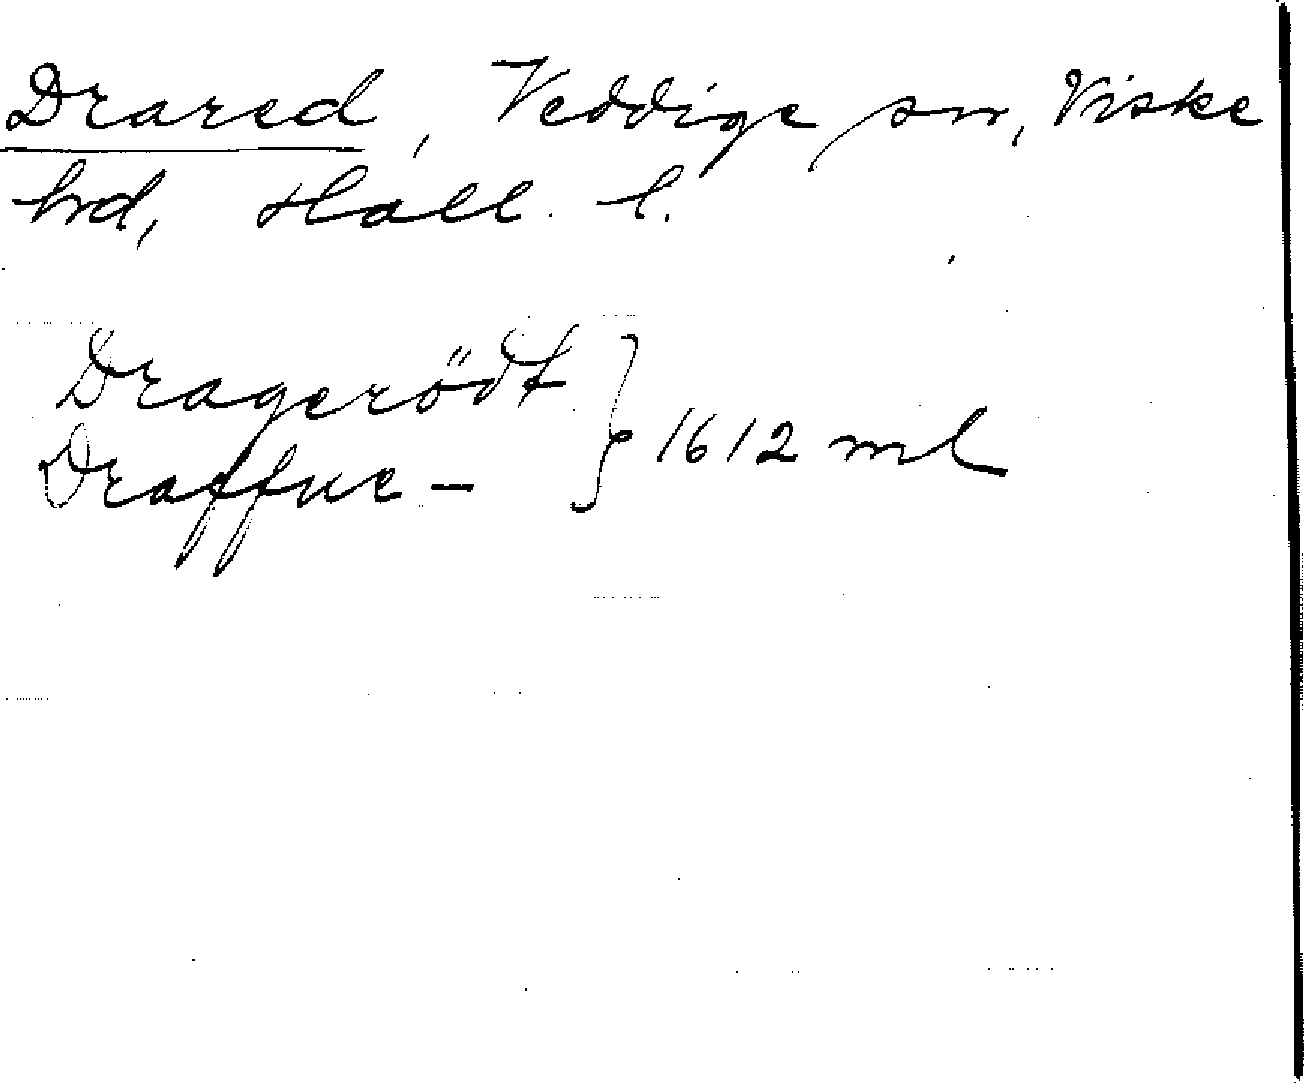 Drared, Veddige sn, Viske
hrd, Hall. l.
Dragerödt } 1612 ml
Draffue -